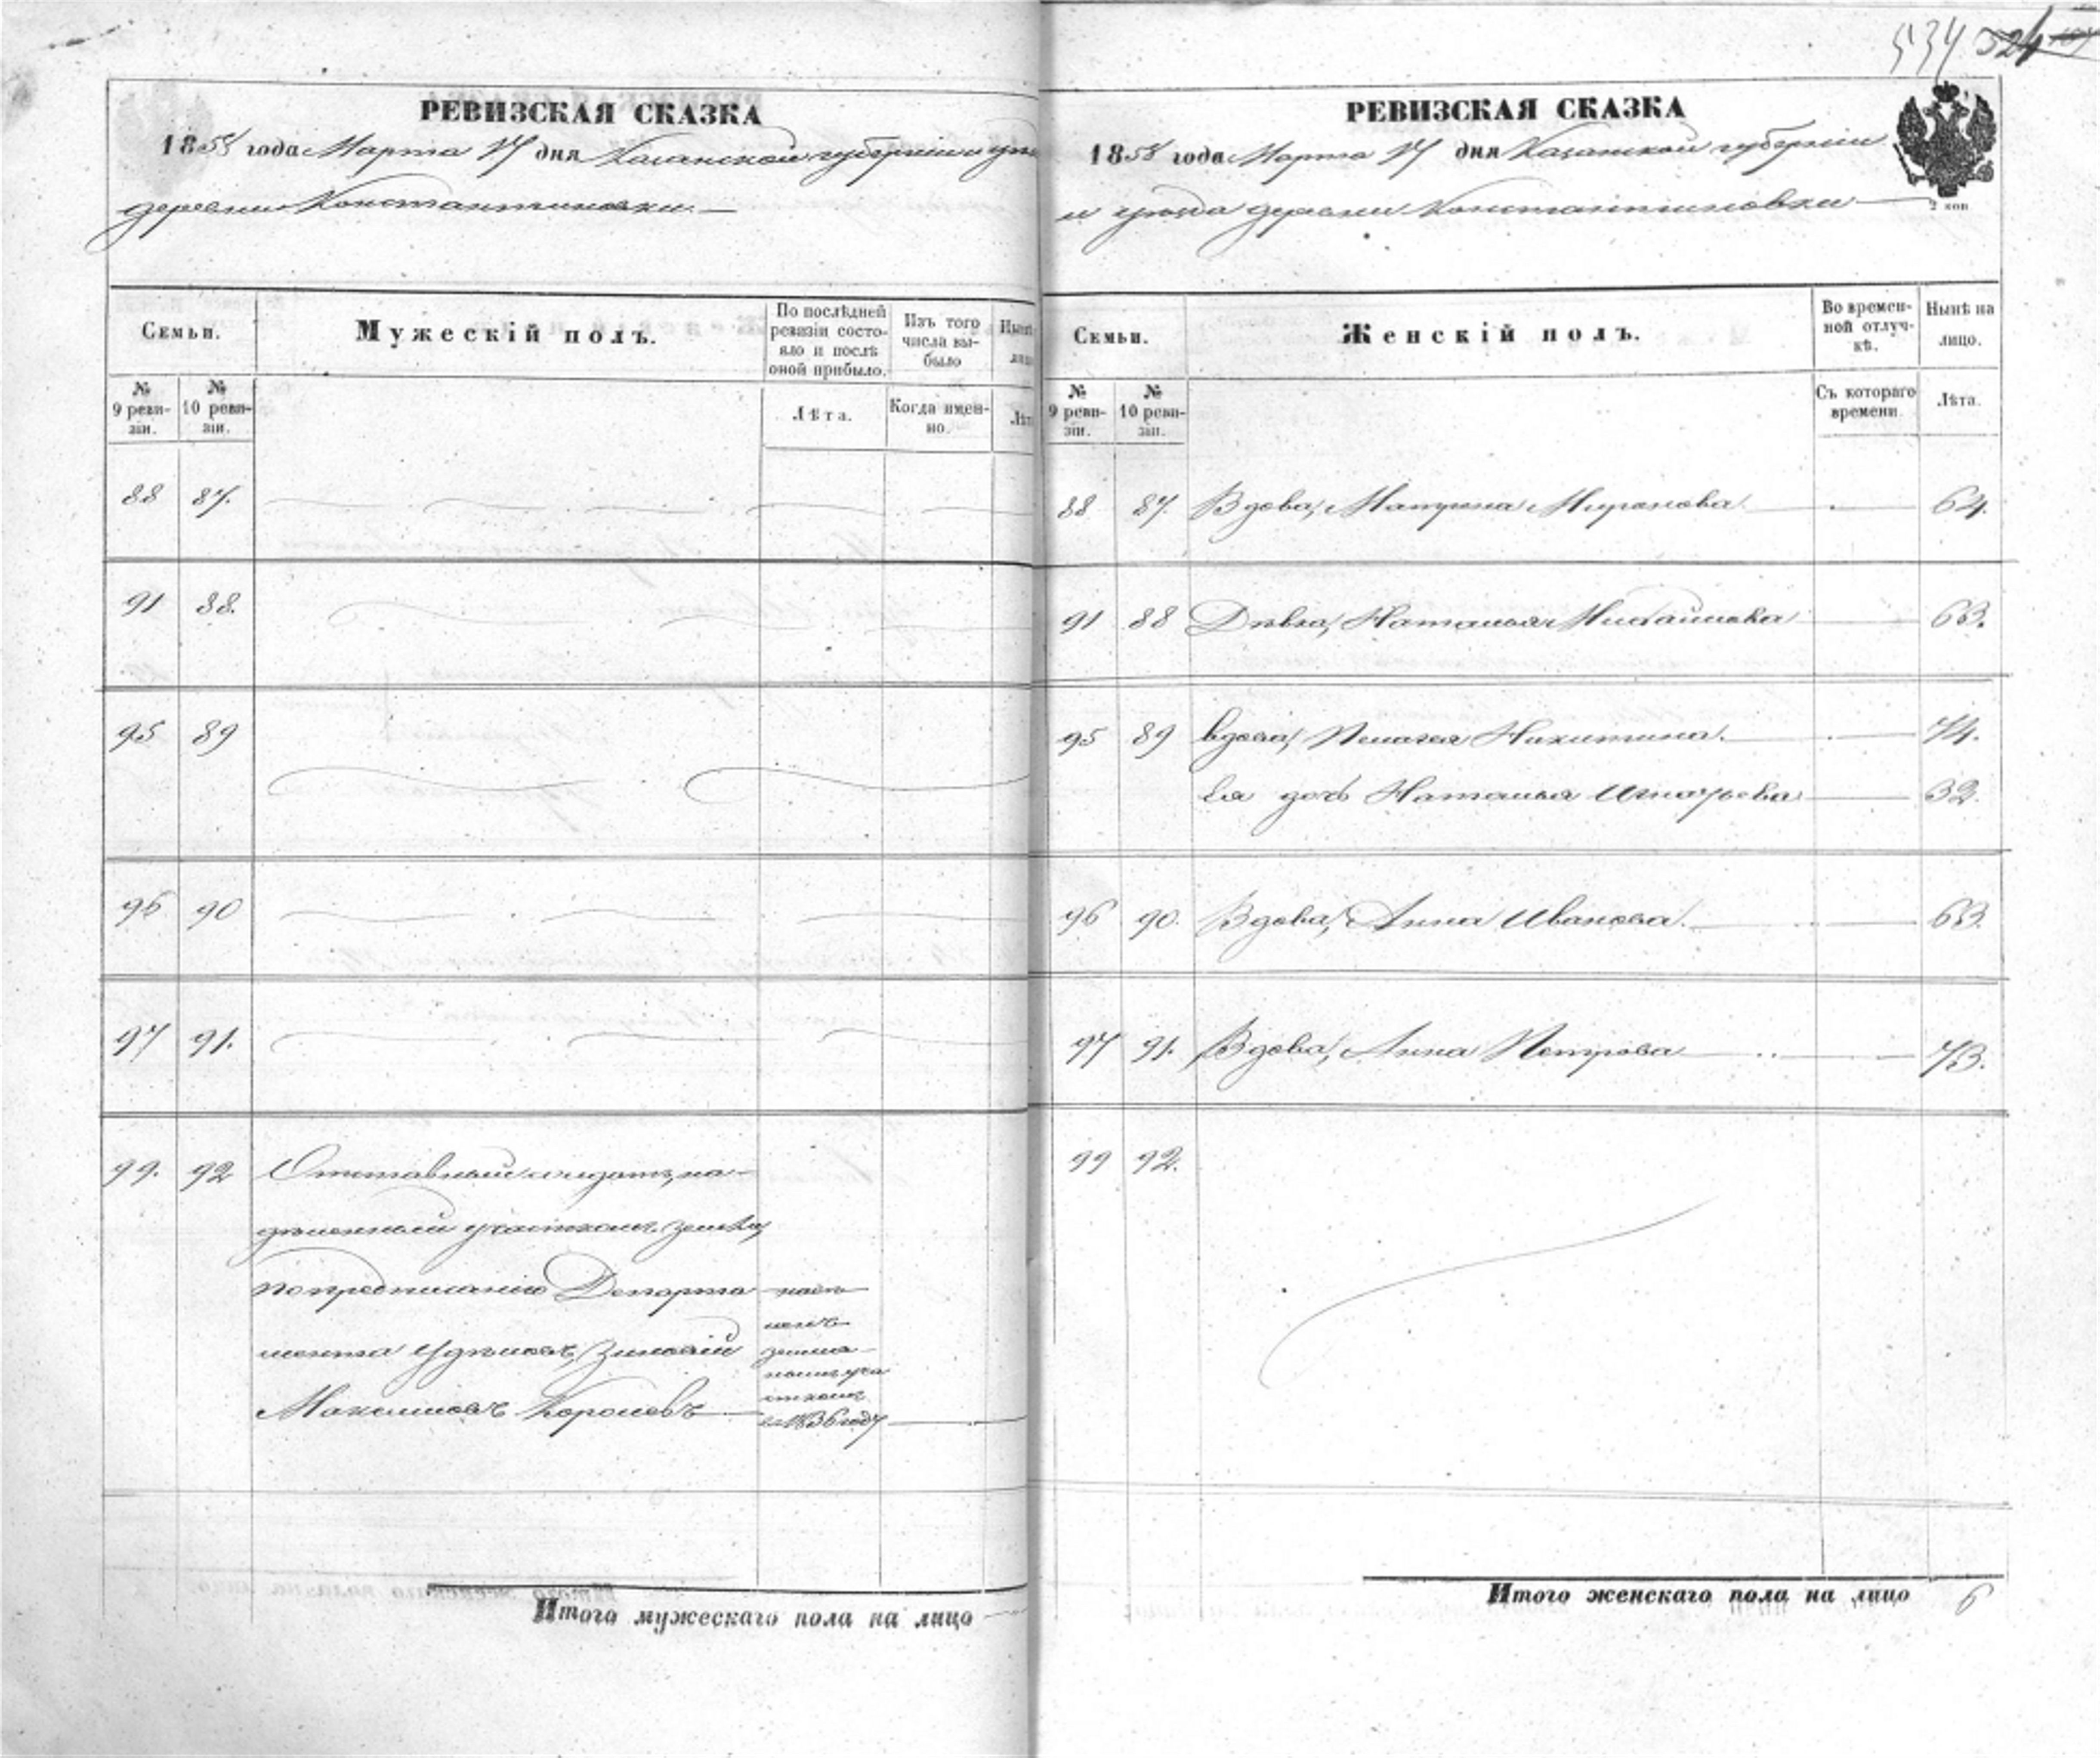 534 524
РЕВИЗСКАЯ СКАЗКА
1858 года Марта 17 дня Казанской губерніи и уѣз
деревни Константиновки
Семьи.
Мужескій полъ.
По послѣдней ревизіи состояло и послѣ оной прибыло.
Изъ того числа выбыло
Нынѣ
№ 9 ревизіи.
№ 10 ревизіи.
Лѣта.
Когда именно.
Лѣт
88 87.
91 88.
95 89
96 90
97 91.
99. 92 Отставный солдатъ, на-
дѣленный участкомъ земли,
по предписанію Департа
мента Удѣловъ, Зиновій
Максимовъ Королевъ
надѣ
ленъ
земля-
нымъ уча
сткомъ
въ 1836 году
Итого мужескаго пола на лицо
РЕВИЗСКАЯ СКАЗКА
1858 года Марта 17 дня Казанской губерніи
и уѣзда деревни Константиновки
2 коп
Семьи.
Женскій полъ.
Во временной отлучкѣ.
Нынѣ на лицо.
№ 9 ревизіи.
№ 10 ревизіи.
Съ котораго времени.
Лѣта.
88 87. Вдова, Матрена Миронова 64.
91 88 Дѣвка, Наталья Михайлова 63.
95 89 Вдова, Пелагея Никитина. 74.
Ея дочь Наталья Игнатьева 32.
96 90. Вдова, Анна Иванова. 63.
97 91. Вдова, Анна Петрова 73.
99 92.
Итого женскаго пола на лицо 6